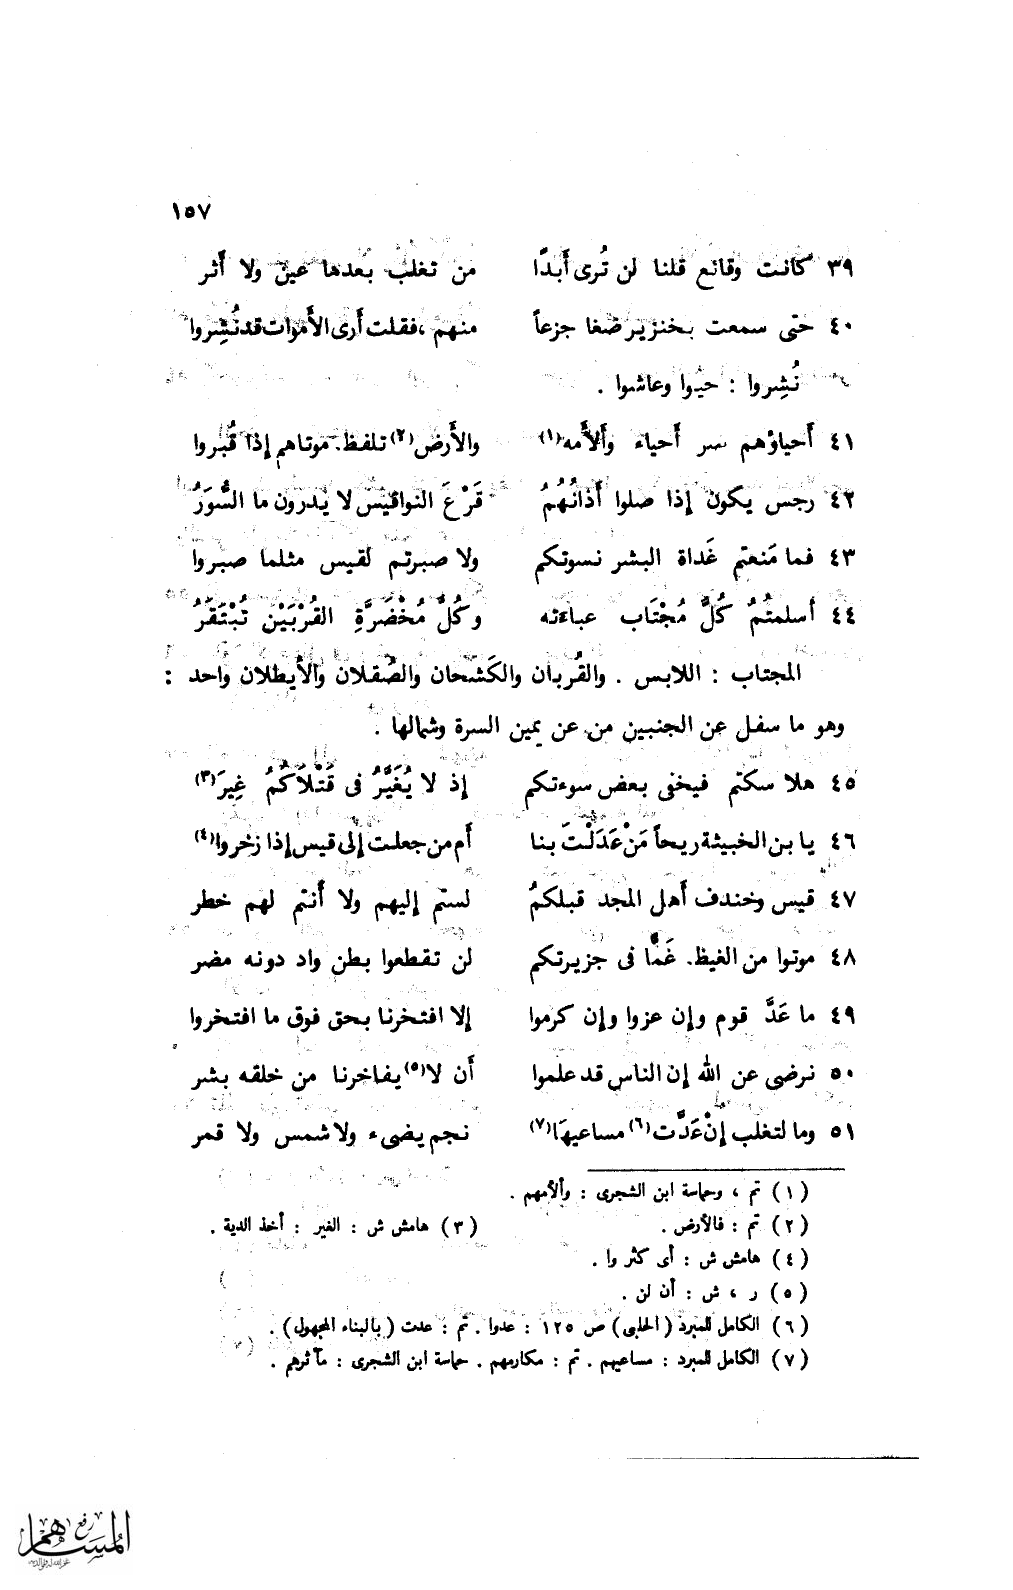 ١٥٧
٣٩ كانت وقائع قلنا لن تُرى أَبدًّا من تغلب بعدها عين ولا أَثر
٤٠ حتى سمعت بخنزير ضغا جزعاً منهم ، فقلت أَرى الأَموات قد نُشِروا
نُشِروا : حيُوا وعاشوا .
٤١ أَحياؤهم شر أَحياء وأَلأَمه(١) والأَرض(٢) تلفظ موتاهم إذا قُبروا
٤٢ رجس يكون إذا صلوا أَذانُهُمُ قَرْعَ النواقيس لا يدرون ما السُّوَرُ
٤٣ فما مَنعتم غَداة البشر نسوتكم ولا صبرتم لقيس مثلما صبروا
٤٤ أَسلمتُمُ كُلَّ مُجْتَاب عباءَته وكُلَّ مُخْضَرَّةِ القُرْبَيْن تُبْتَقَرُ
المجتاب : اللابس . والقُربان والكَشحان والصُقلان والأيطلان واحد :
وهو ما سفل عن الجنبين من عن يمين السرة وشمالها .
٤٥ هلا سكتم فيخفى بعض سوءتكم إذ لا يُغَيَّرُ فى قَتْلاَكُمُ غِيَرَ(٣)
٤٦ يا بن الخبيثة ريحاً مَنْ عَدَلْتَ بنا أَم من جعلت إلى قيس إذا زخروا(٤)
٤٧ قيس وخندف أَهل المجد قبلكمُ لستم إليهم ولا أَنتم لهم خطر
٤٨ موتوا من الغيظ غَمًّا فى جزيرتكم لن تقطعوا بطن واد دونه مضر
٤٩ ما عَدَّ قوم وإن عزوا وإن كرموا إلا افتخرنا بحق فوق ما افتخروا
٥٠ نرضى عن الله إن الناس قد علموا أَن لا(٥) يفاخرنا من خلقه بشر
٥١ وما لتغلب إنْ عَدَّت(٦) مساعيهَا(٧) نجم يضىء ولا شمس ولا قمر
(١) تم ، وحماسة ابن الشجرى : وألأمهم .
(٢) تم : فالأرض . (٣) هامش ش : الغير : أخذ الدية .
(٤) هامش ش : أى كثروا .
(٥) ر ، ش : أن لن .
(٦) الكامل للمبرد (الحلبى) ص ١٢٥ : عدوا . تم : عدت (بالبناء المجهول) .
(٧) الكامل للمبرد : مساعيهم . تم : مكارمهم . حماسة ابن الشجرى : مآثرهم .
رفع
المساهم